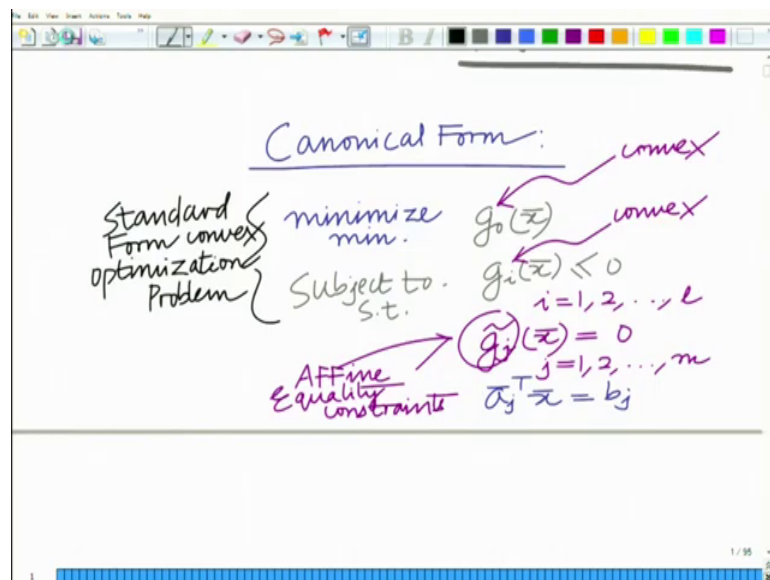 File Edit View Insert Actions Tools Help
B I
Canonical Form:
convex
Standard
Form convex
optimization
Problem
minimize g₀(x̄)
min.
convex
Subject to. gᵢ(x̄) ≤ 0
s.t. i=1, 2, . . , l
g̃ⱼ(x̄) = 0
j=1, 2, . . . , m
AFFine
Equality
constraints
āⱼᵀ x̄ = bⱼ
1 / 95
1